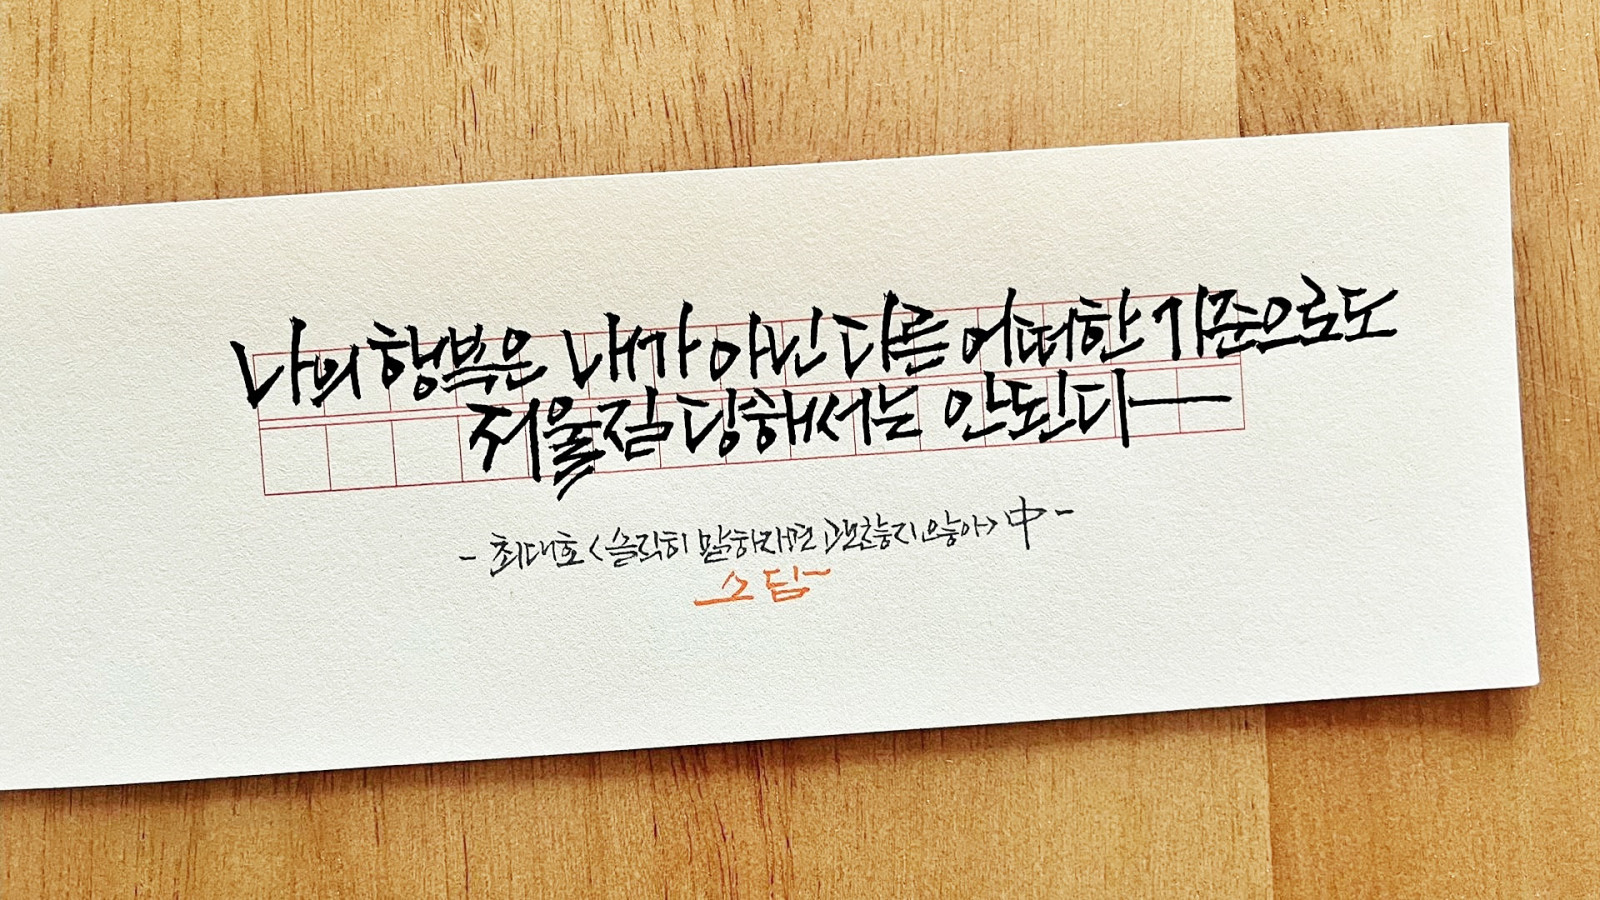 나의 행복은 내가 아닌 다른 어떠한 기준으로도
저울질 당해서는 안된다
- 최대호 <솔직히 말하자면 괜찮지 않아> 中 -
소담